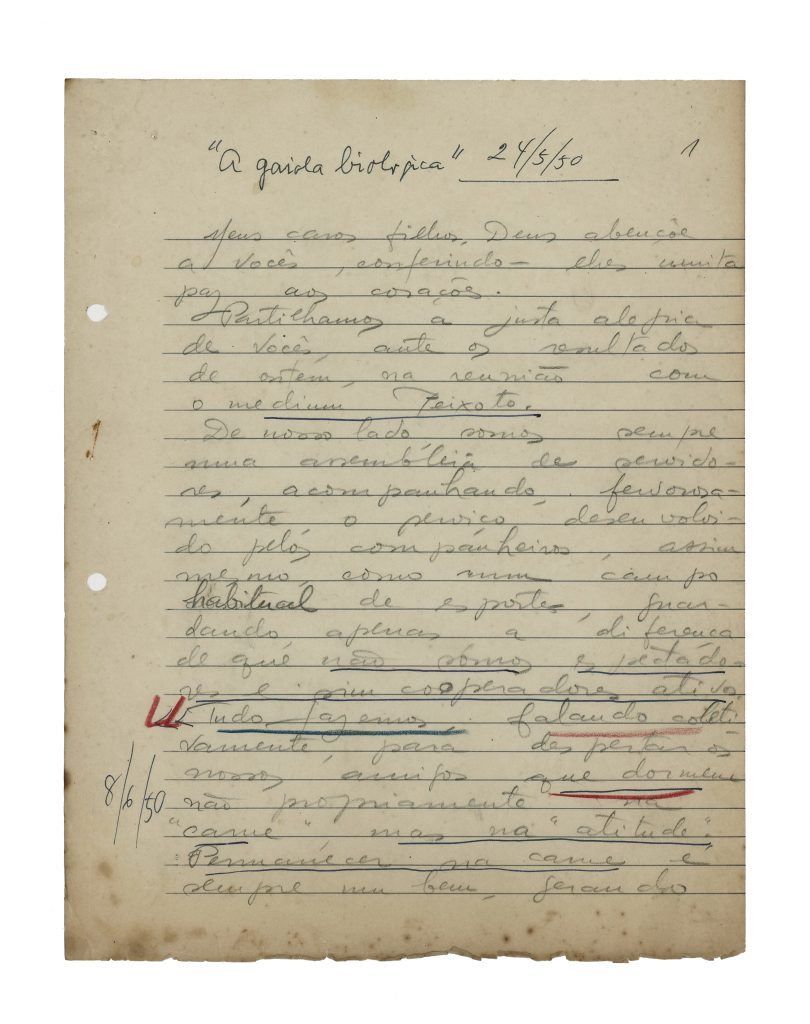 "A gaiola biológica" 24/5/50 1
Meus caros filhos, Deus abençôe
a vocês, conferindo-lhes muita
paz aos corações.
Partilhamos a justa alegria
de vocês, ante os resultados
de ontem, na reunião com
o medium Peixoto.
De nosso lado, somos sempre
numa assembléia de servido-
res, acompanhando, fervorosa-
mente, o serviço, desenvolvi-
do pelos companheiros, assim
mesmo, como num campo
habitual de esporte, guar-
dando apenas a diferença
de que não somos espectado-
res e sim cooperadores ativos.
Tudo fazemos, falando coleti
vamente, para despertar os
nossos amigos que dormem
8/6/50
não propriamente na
"carne", mas na "atitude".
Permanecer na carne é
sempre um bem, quando